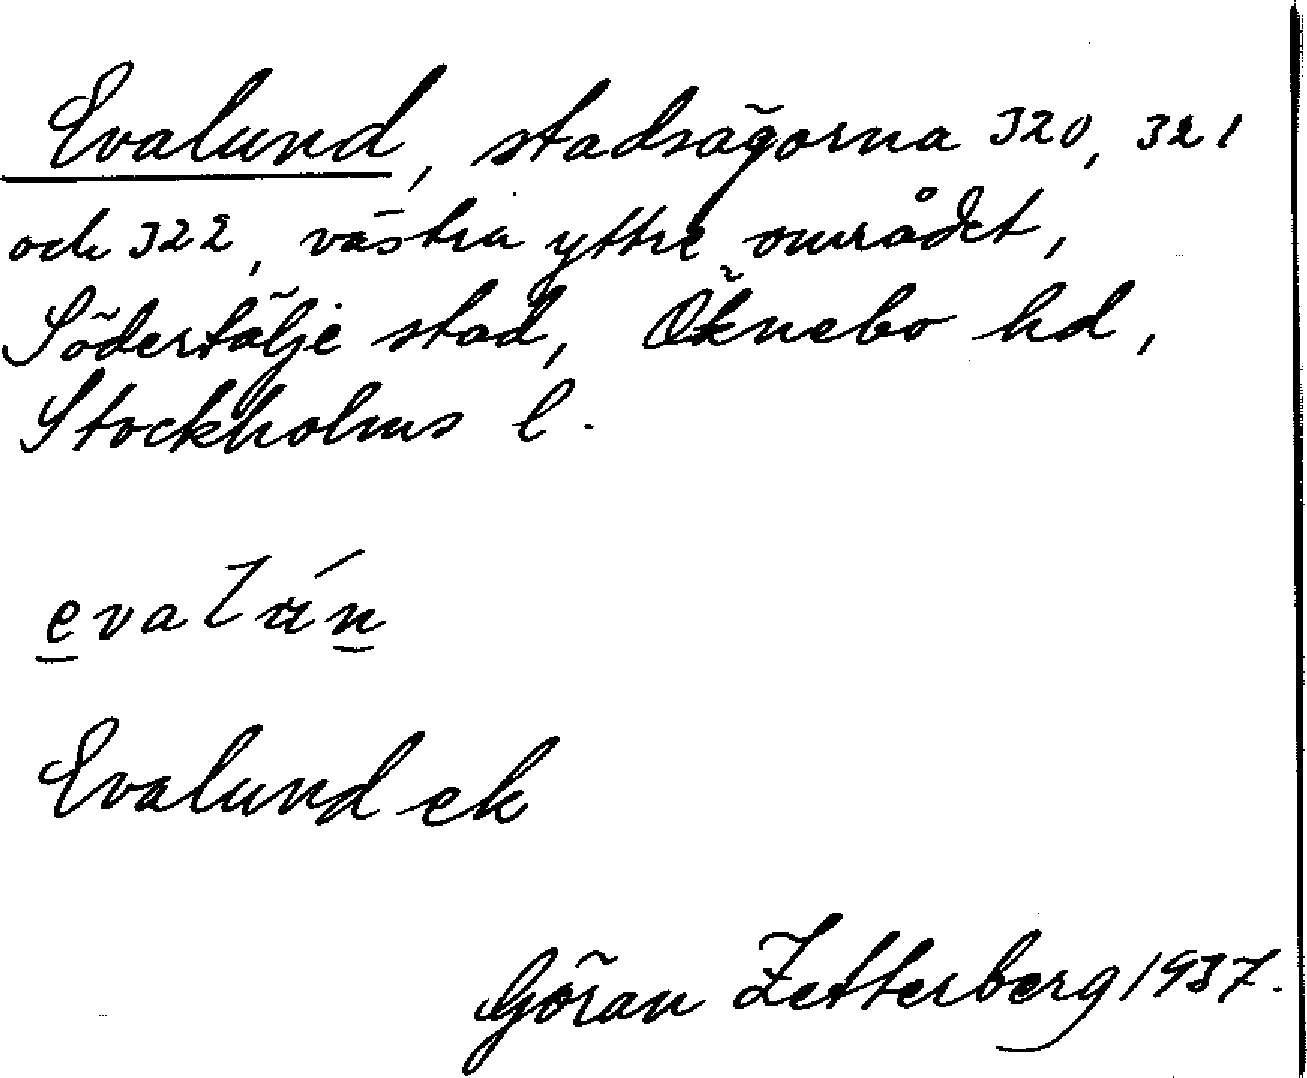 Evalund, stadsägorna 320, 321
och 322, västra yttre området,
Södertälje stad, Öknebo hd,
Stockholms l.
evalún
Evalund ek
Göran Zetterberg 1937.